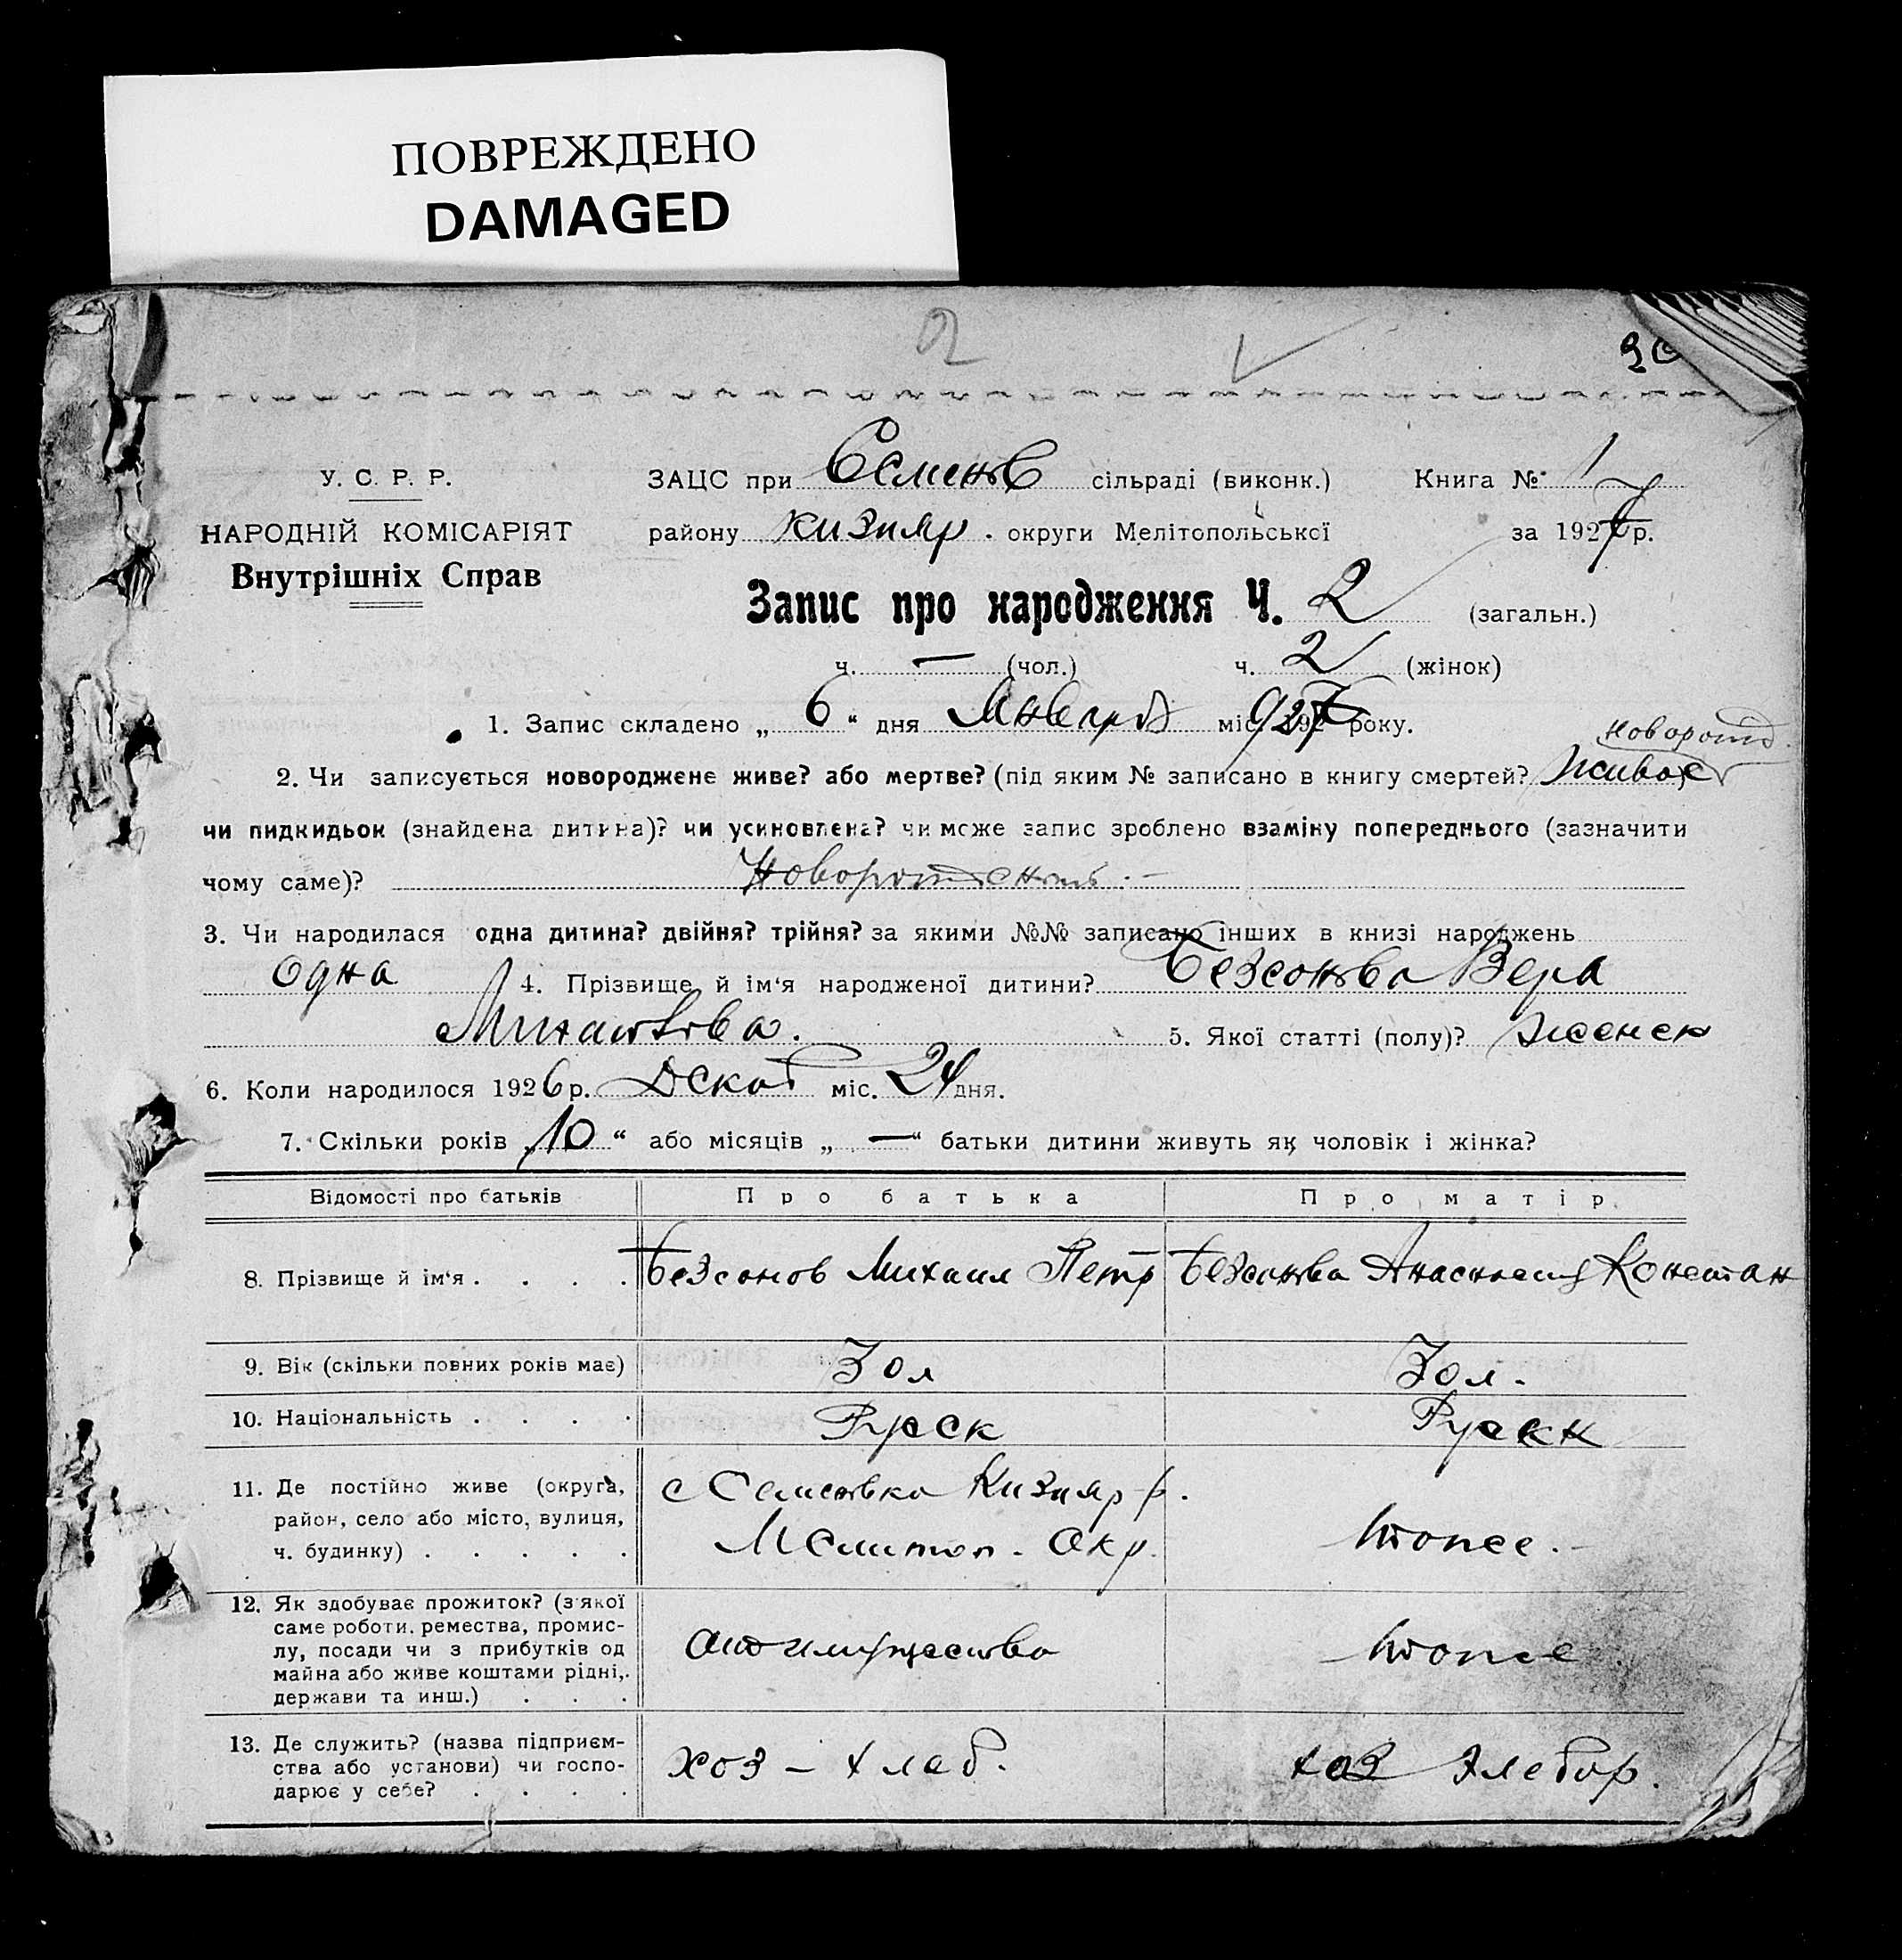 ПОВРЕЖДЕНО
DAMAGED
2
У. С. Р. Р.
НАРОДНІЙ КОМІСАРІЯТ
Внутрішніх Справ
ЗАЦС при Семенов сільраді (виконк.) Книга № 1
району Кизияр. округи Мелітопольської за 1927 р.
Запис про народження Ч. 2 (загальн.)
ч. — (чол.) ч. 2 (жінок)
1. Запис складено „ 6 “ дня Января міс. 1927 року.
новорожд.
2. Чи записується новороджене живе? або мертве? (під яким № записано в книгу смертей?) живое
чи пидкидьок (знайдена дитина)? чи усиновлена? чи може запис зроблено взаміну попереднього (зазначити
чому саме)? Новорожден
3. Чи народилася одна дитина? двійня? трійня? за якими №№ записано інших в книзі народжень
Одна 4. Прізвище й ім‘я народженої дитини? Безсонова Вера
Михайлова. 5. Якої статті (полу)? женск
6. Коли народилося 1926 р. Декаб міс. 24 дня.
7. Скільки років „ 10 “ або місяців „ — “ батьки дитини живуть як чоловік і жінка?
Відомості про батьків Про батька Про матір
8. Прізвище й ім‘я . . . . Безсонов Михаил Петр Безсонова Анастасия Констан
9. Вік (скільки повних років має) 30 л 30 л.
10. Національність . . . . Русск Русск
11. Де постійно живе (округа, район, село або місто, вулиця, ч. будинку) . . . . . с Семеновка Кизияр р. Мелитоп. Окр. тоже.
12. Як здобуває прожиток? (з якої саме роботи, ремества, промислу, посади чи з прибутків од майна або живе коштами рідні, держави та инш.) . . . от имущества тоже
13. Де служить? (назва підприємства або установи) чи господарює у себе? . . . . хоз – хлеб. хоз хлебор.